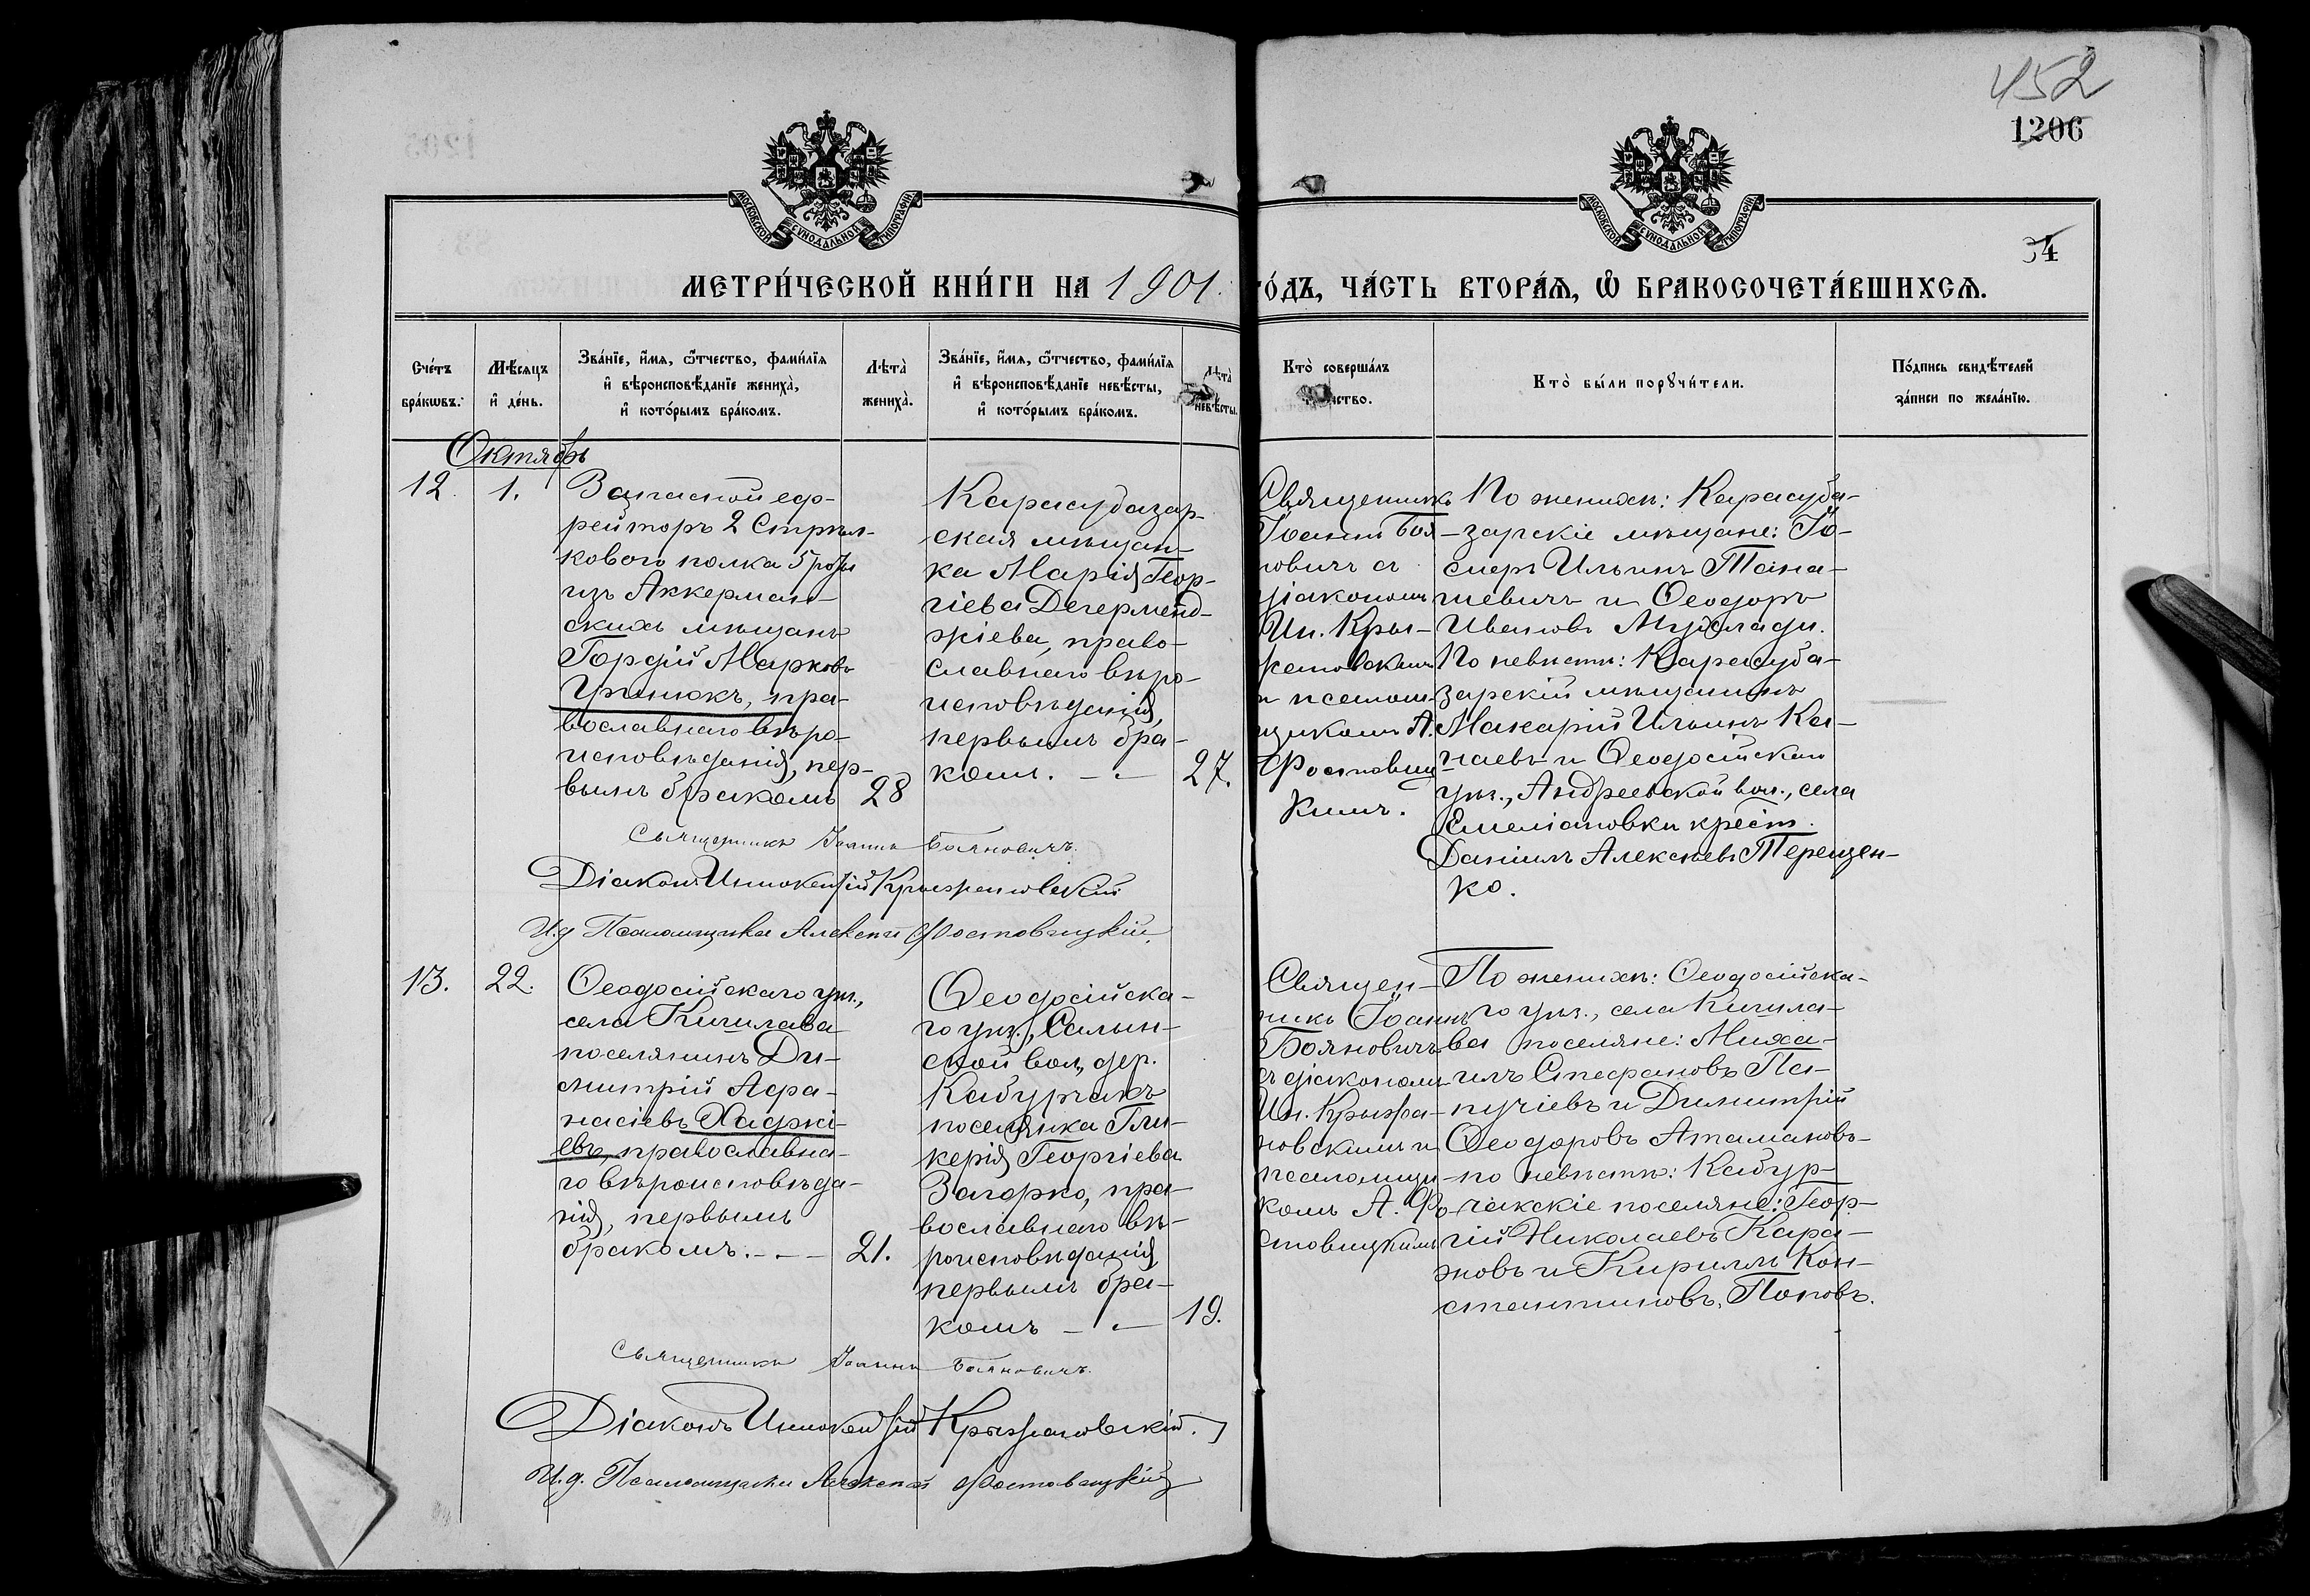 452
1206
МОСКОВСКОЙ СѴНОДАЛЬНОЙ ТИПОГРАФІИ
МОСКОВСКОЙ СѴНОДАЛЬНОЙ ТИПОГРАФІИ
34
МЕТРИ́ЧЕСКОЙ КНИ́ГИ НА 1901 ГО́ДЪ, ЧА́СТЬ ВТОРА́Ѧ, Ѡ҆ БРАКОСОЧЕТА́ВШИХСѦ.
Сче́тъ
бра́кѡвъ.
Мѣ́сяцъ
и҆ де́нь.
Зва́нїе, и҆́мя, ѻ҆́тчество, фами́лїя
и҆ вѣроисповѣ́данїе жениха̀,
и҆ кото́рымъ бра́комъ.
Лѣта̀
жениха̀.
Зва́нїе, и҆́мя, ѻ҆́тчество, фами́лїя
и҆ вѣроисповѣ́данїе невѣ́сты,
и҆ кото́рымъ бра́комъ.
Лѣта̀
невѣ́сты.
Кто̀ соверша́лъ
Кто̀ бы́ли порꙋчи́тели.
По́дпись свидѣ́телей
за́писи по жела́нїю.
Октябрь
12.
1.
Запасной еф-
рейторъ 2 Стрѣл-
коваго полка 5 роты
изъ Аккерман-
скихъ мѣщанъ
Гордій Марковъ
Гринюкъ, пра-
вославнаго вѣро-
исповѣданія, пер-
вымъ бракомъ
28
Карасубазар-
ская мѣщан-
ка Марія Геор-
гіева Дегерменд-
жіева, право-
славнаго вѣро-
исповѣданія,
первымъ бра-
комъ. – –
27.
Священникъ
Іоаннъ Боя-
новичъ съ
діакономъ
Ин. Кры-
жановскимъ
и псалом-
щикомъ А.
Фостовиц-
кимъ.
По женихѣ: Карасуба-
зарскіе мѣщане: Іо-
сифъ Ильинъ Тана-
шевичъ и Ѳеодоръ
Ивановъ
По невѣстѣ: Карасуба-
зарскій мѣщанинъ
Макарій Ильинъ Ка-
паевъ и Ѳеодосійскаго
уѣз., Андреевской вол., села
Емеліановки крест.
Даніилъ Алексѣевъ Терещен-
ко.
Священникъ Іоаннъ Бояновичъ.
Діаконъ Иннокентій Крыжановскій
И.д. Псаломщика Алексѣй Фостовицкій.
13.
22.
Ѳеодосійскаго уѣз.,
села Кишлава
поселянинъ Ди-
митрій Афа-
насіевъ Хаджі-
евъ, православна-
го вѣроисповѣда-
нія, первымъ
бракомъ. – –
21.
Ѳеодосійска-
го уѣз., Салын-
ской вол., дер.
Кабурчакъ
поселянка Гли-
керія Георгіева
Загорко, пра-
вославнаго вѣ-
роисповѣданія,
первымъ бра-
комъ – –
19.
Священ-
никъ Іоаннъ
Бояновичъ
съ діакономъ
Ин. Крыжа-
новскимъ и
псаломщи-
комъ А. Фо-
стовицкимъ
По женихѣ: Ѳеодосійска-
го уѣз., села Кишла-
ва поселяне: Миха-
илъ Стефановъ Па-
пучіевъ и Димитрій
Ѳеодоровъ Атамановъ
по невѣстѣ: Кабур-
чакскіе поселяне: Геор-
гій Николаевъ Кара-
жовъ и Кириллъ Кон-
стантиновъ Поповъ.
Священникъ Іоаннъ Бояновичъ.
Діаконъ Иннокентій Крыжановскій.
И.д. Псаломщика Алексѣй Фостовицкій